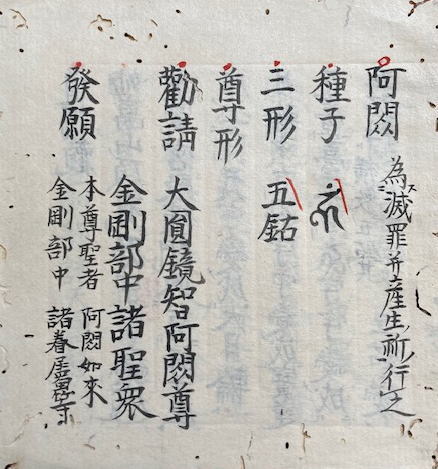 阿閦 為滅罪并産生祈行之
種子
三形 五鈷
尊形
勸請 大圓鏡智阿閦尊
金剛部中諸聖衆
發願 本尊聖者 阿閦如來
金剛部中 諸眷屬等